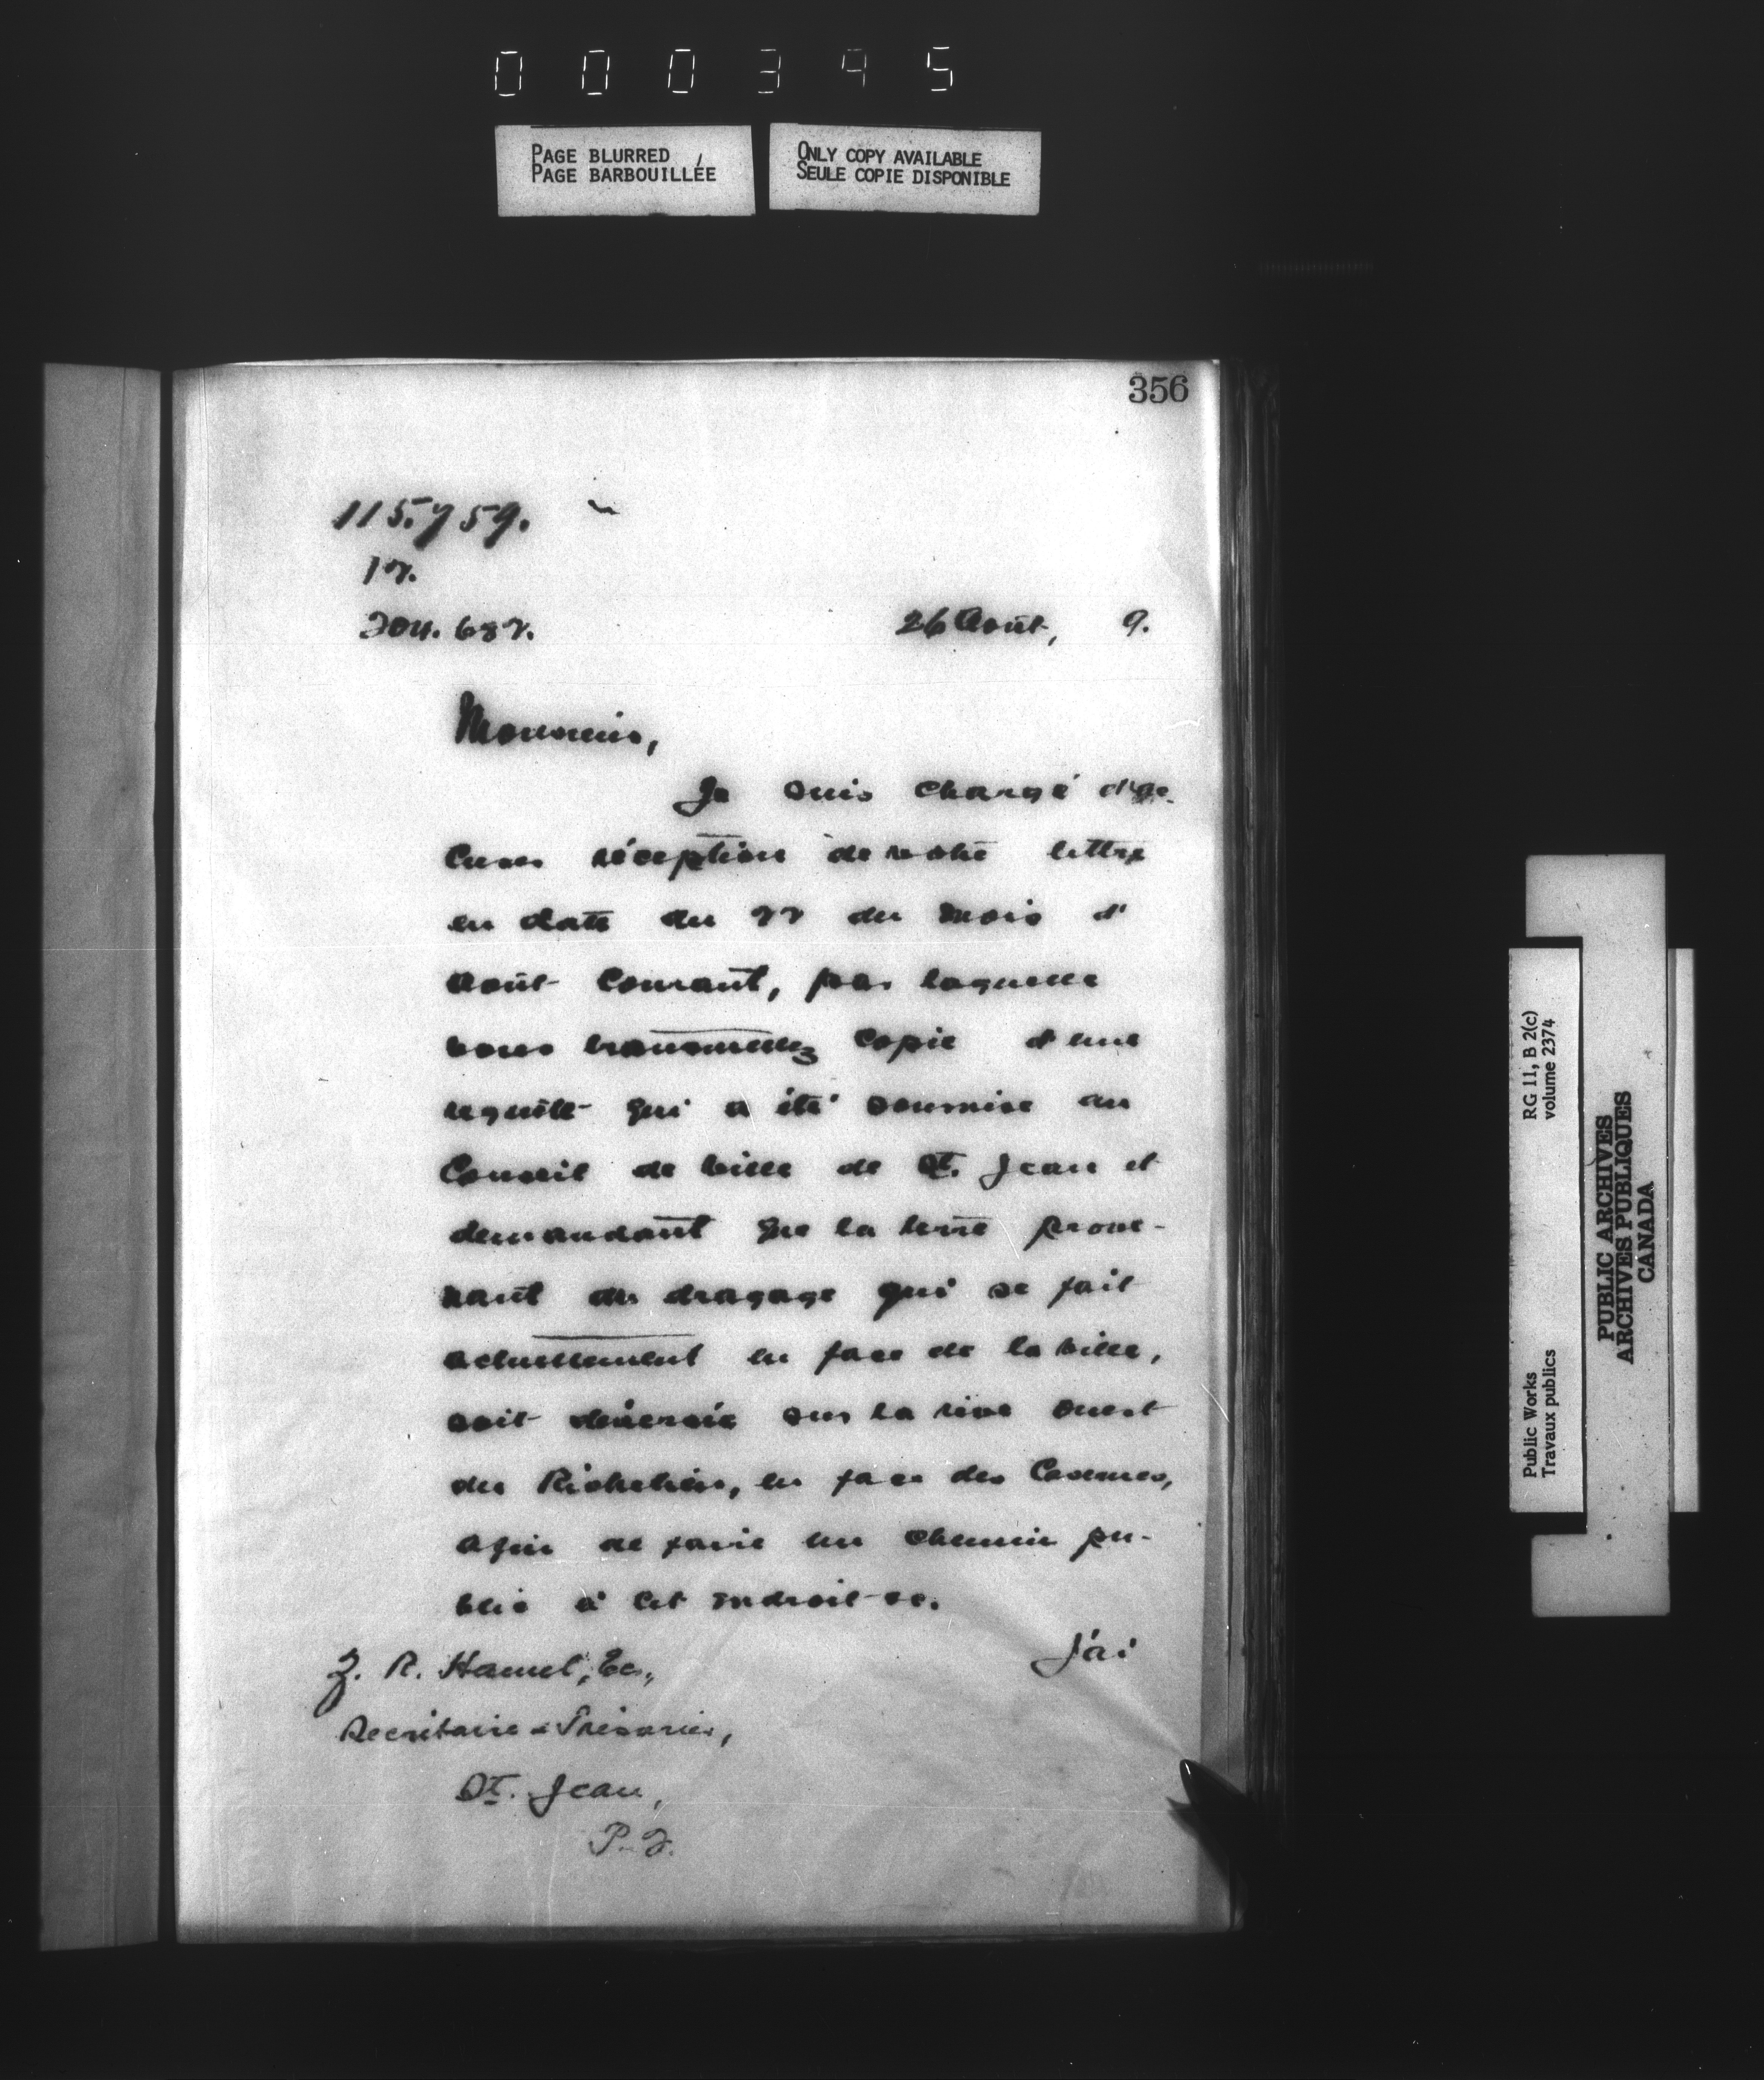 000395
PAGE BLURRED
PAGE BARBOUILLÉE
ONLY COPY AVAILABLE
SEULE COPIE DISPONIBLE
356
115.759.
12.
204.682.
26 Août, 9.
Monsieur,
Je suis chargé d'ac-
cuser réception de votre lettre
en date du 22 du mois d'
août courant, par laquelle
vous transmettez copie d'une
requête qui a été soumise au
Conseil de ville de St. Jean et
demandant que la terre prove-
nant du dragage qui se fait
actuellement en face de la ville,
soit déversée sur la rive ouest
du Richelieu, en face des Casernes,
afin de faire un chemin pu-
blic à cet endroit-ce.
J'ai
J. R. Hamel, Ec.,
Secrétaire-Trésorier,
St. Jean,
P. Q.
RG 11, B 2(c)
volume 2374
Public Works
Travaux publics
PUBLIC ARCHIVES
ARCHIVES PUBLIQUES
CANADA